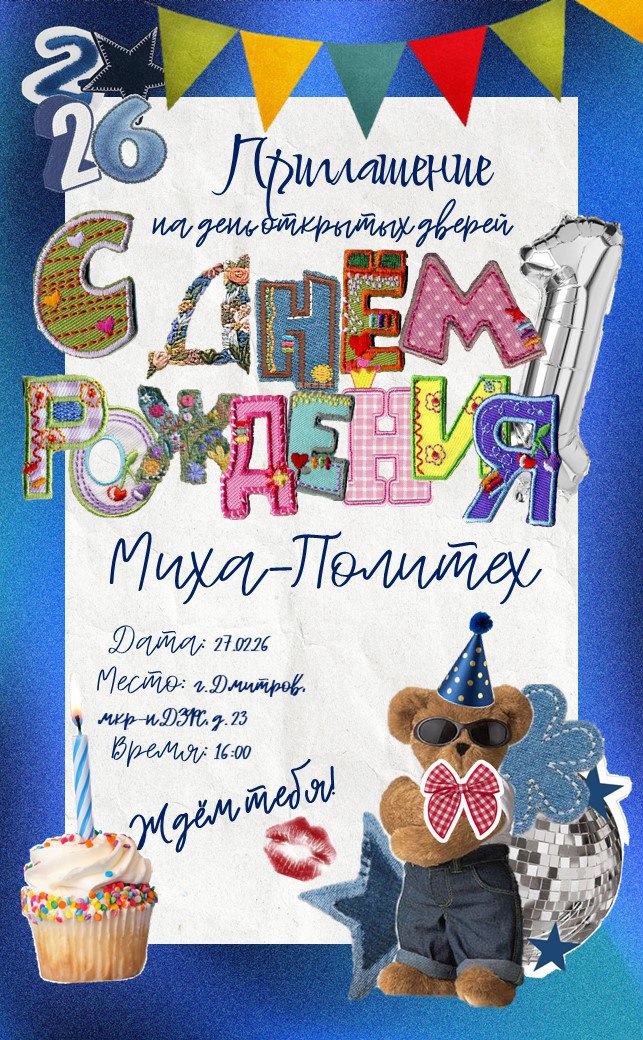 2026
Приглашение
на день открытых дверей
С ДНЕМ 1
РОЖДЕНИЯ
Миха-Политех
Дата: 27.02.26
Место: г.Дмитров,
мкр-н ДЗФС, д. 23
Время: 16:00
Ждём тебя!